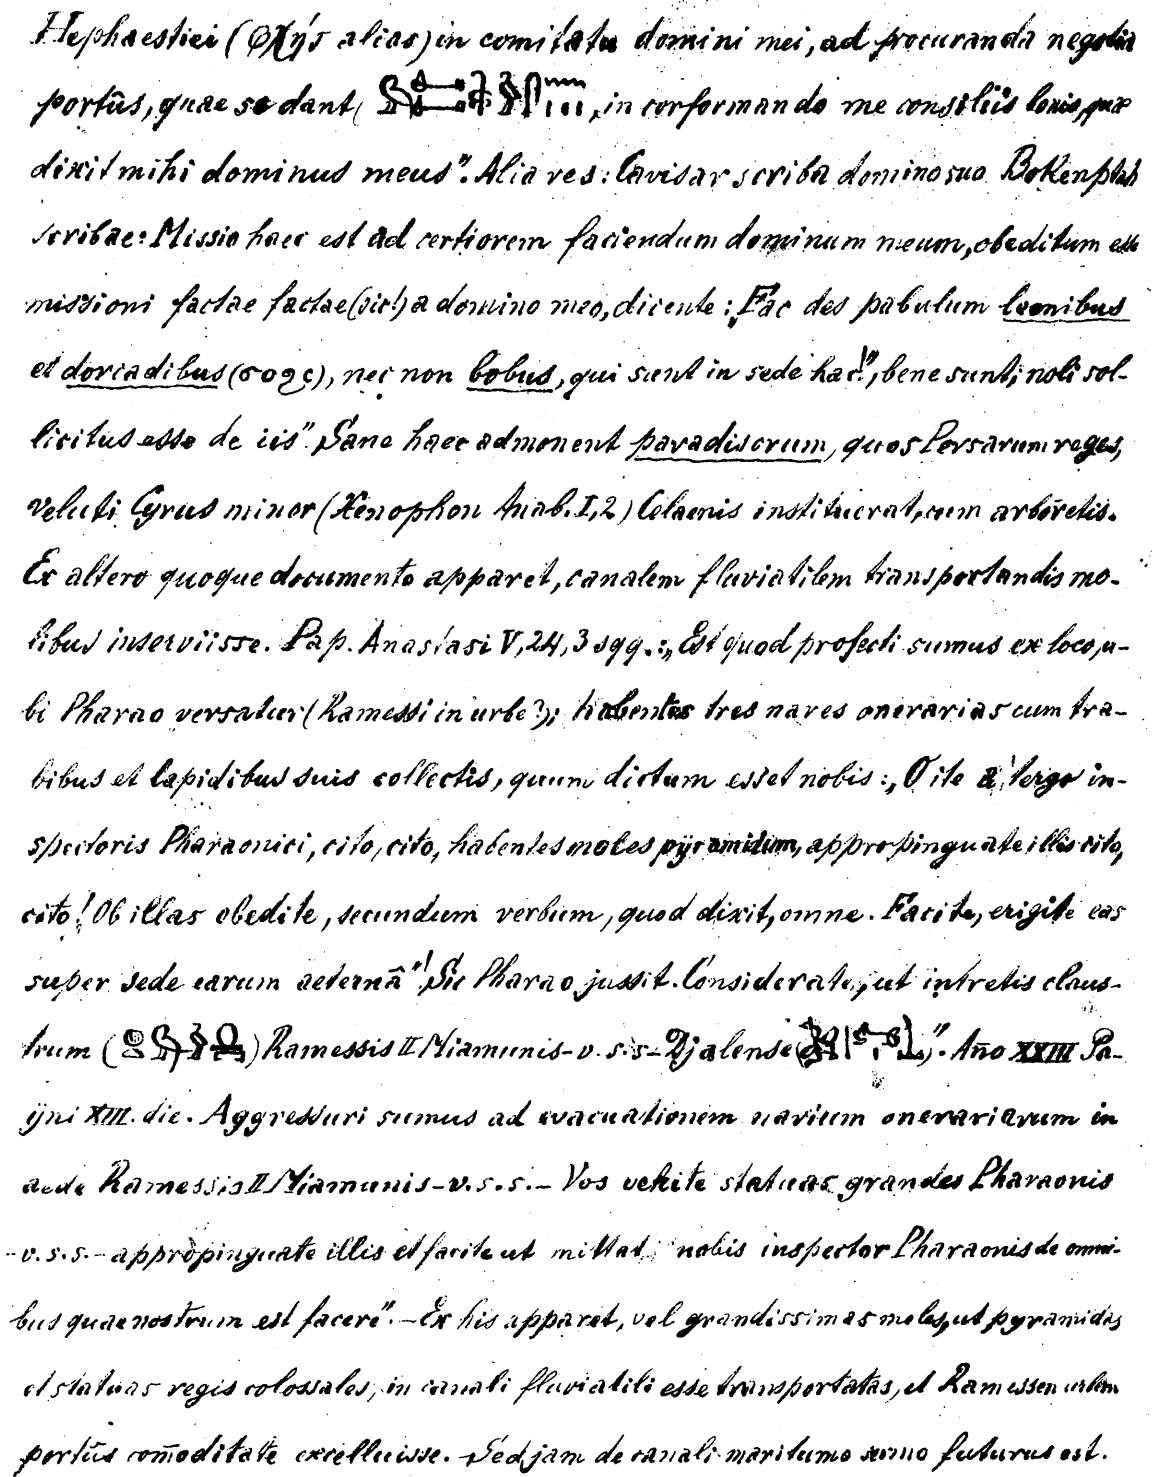 Hephaestiei ( alias) in comitatu domini mei, ad procuranda negotia
portûs, quae se dant, in corformando me consiliis bonis, quae
dixit mihi dominus meus". Alia res: Cavisar scriba domino suo Bokenptah
scribae: Missio haec est ad certiorem faciendum dominum meum, obeditum esse
missioni factae factae (sic!) a domino meo, dicente: „Fac des pabulum leonibus
et dorcadibus (ϭοϩϲ), nec non bobus, qui sunt in sede hac!", bene sunt; noli sol-
licitus esse de iis". Sane haec admonent paradisorum, quos Persarum reges,
veluti Cyrus minor (Xenophon Anab. I, 2) Celaenis instituerat, cum arborētis.
Ex altero quoque documento apparet, canalem fluviatilem transportandis mo-
libus inserviisse. Pap. Anastasi V, 24, 3 sqq.: „Est quod profecti sumus ex loco, u-
bi Pharao versatur (Ramessi in urbe?); habentes tres naves onerarias cum tra-
bibus et lapidibus suis collectis, quum dictum esset nobis: „O ite a tergo in-
spectoris Pharaonici, cito, cito, habentes moles pyramidum, appropinquate illis cito,
cito! Ob illas obedite, secundum verbum, quod dixit, omne. Facite, erigite eas
super sede earum aeternâ"! Sic Pharao jussit. Considerate, ut intretis claus-
trum () Ramessis II Miamunis - v. s. s. - Djalense ()". Año XXIII Pa-
ÿni XIII. die. Aggressuri sumus ad evacuationem navium onerariarum in
aede Ramessis II Miamunis - v. s. s. - Vos vehite statuas grandes Pharaonis
- v. s. s. - appropinquate illis et facite ut mittat nobis inspector Pharaonis de omni-
bus quae nostrum est facere". - Ex his apparet, vel grandissimas moles, ut pyramides
et statuas regis colossales, in canali fluviatili esse transportatas, et Ramessen urbem
portûs com̄oditate excelluisse. - Sed jam de canali maritumo sermo futurus est.